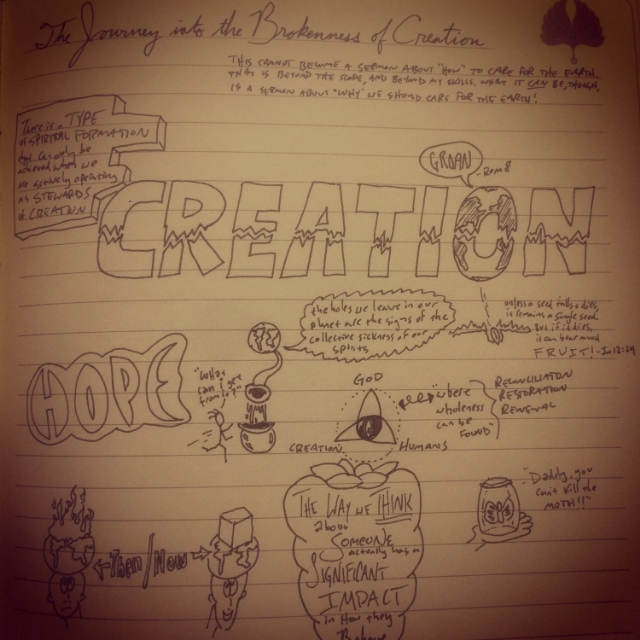 The Journey into the Brokenness of Creation
THIS CANNOT BECOME A SERMON ABOUT "HOW" TO CARE FOR THE EARTH.
THAT IS BEYOND THE SCOPE, AND BEYOND MY SKILLS. WHAT IT CAN BE, THOUGH,
IS A SERMON ABOUT "WHY" WE SHOULD CARE FOR THE EARTH!
There is a TYPE
of SPIRITUAL FORMATION
that can only be
achieved when we
are actively operating
as STEWARDS
of CREATION
GROAN
Rom 8
CREATION
the holes we leave in our
planet are the signs of the
collective sickness of our
spirits
unless a seed falls & dies,
it remains a single seed.
But if it dies,
it can bear much
FRUIT! - Jn 12:24
HOPE
"What
can I get
from it?"
GOD
CREATION
HUMANS
where
wholeness
can be
FOUND
RECONCILIATION
RESTORATION
RENEWAL
THE WAY WE THINK
about
SOMEONE
actually has a
SIGNIFICANT
IMPACT
in How they
Behave
"Daddy, you
can't kill the
MOTH!!"
Then/Now